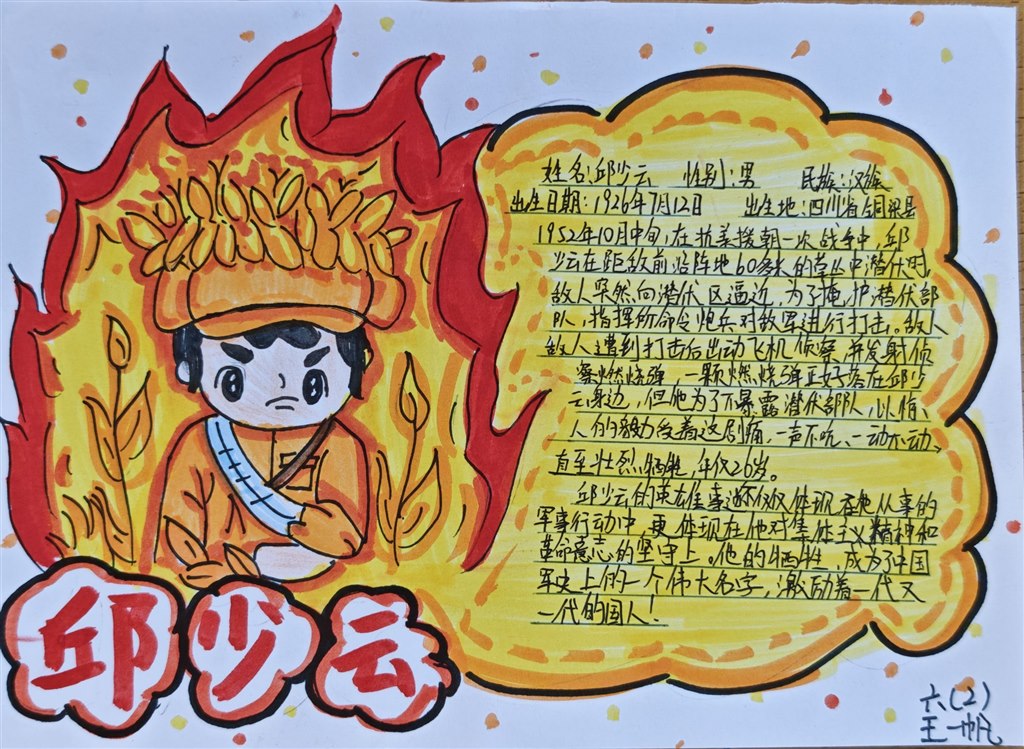 姓名:邱少云 性别:男 民族:汉族
出生日期:1926年7月12日 出生地:四川省铜梁县
1952年10月中旬,在抗美援朝一次战争中,邱
少云在距敌前沿阵地60多米的草丛中潜伏时,
敌人突然向潜伏区逼近,为了掩护潜伏部
队,指挥所命令炮兵对敌军进行打击。敌人
敌人遭到打击后出动飞机侦察,并发射侦
察燃烧弹,一颗燃烧弹正好落在邱少
云身边,但他为了不暴露潜伏部队,以惊
人的毅力受着这剧痛,一声不吭、一动不动,
直至壮烈牺牲,年仅26岁。
邱少云的英雄事迹不仅仅体现在他从事的
军事行动中,更体现在他对集体主义精神和
革命意志的坚守上。他的牺牲,成为了中国
军史上的一个伟大名字,激励着一代又
一代的国人!
邱少云
六(2)
王一帆